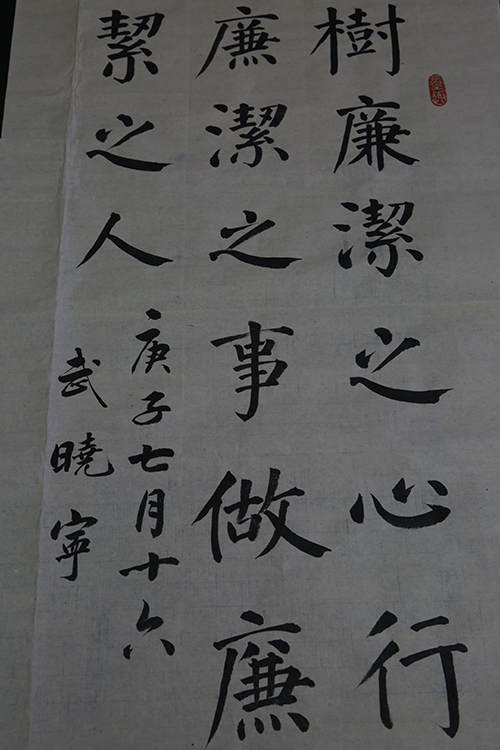 樹廉潔之心行
廉潔之事做廉
絜之人
庚子七月十六
武曉寧